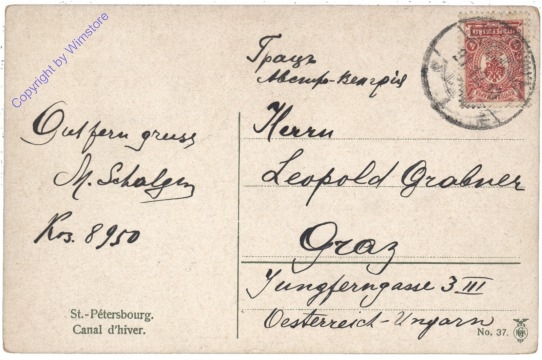 Copyright by Wimstore
Грацъ
Австр-Венгрія
Gut fern gruss
M. Schalgen
Kos. 8950
Herrn
Leopold Grabner
Graz
Jungferngasse 3 III
Oesterreich-Ungarn
St.-Pétersbourg.
Canal d'hiver.
No. 37.